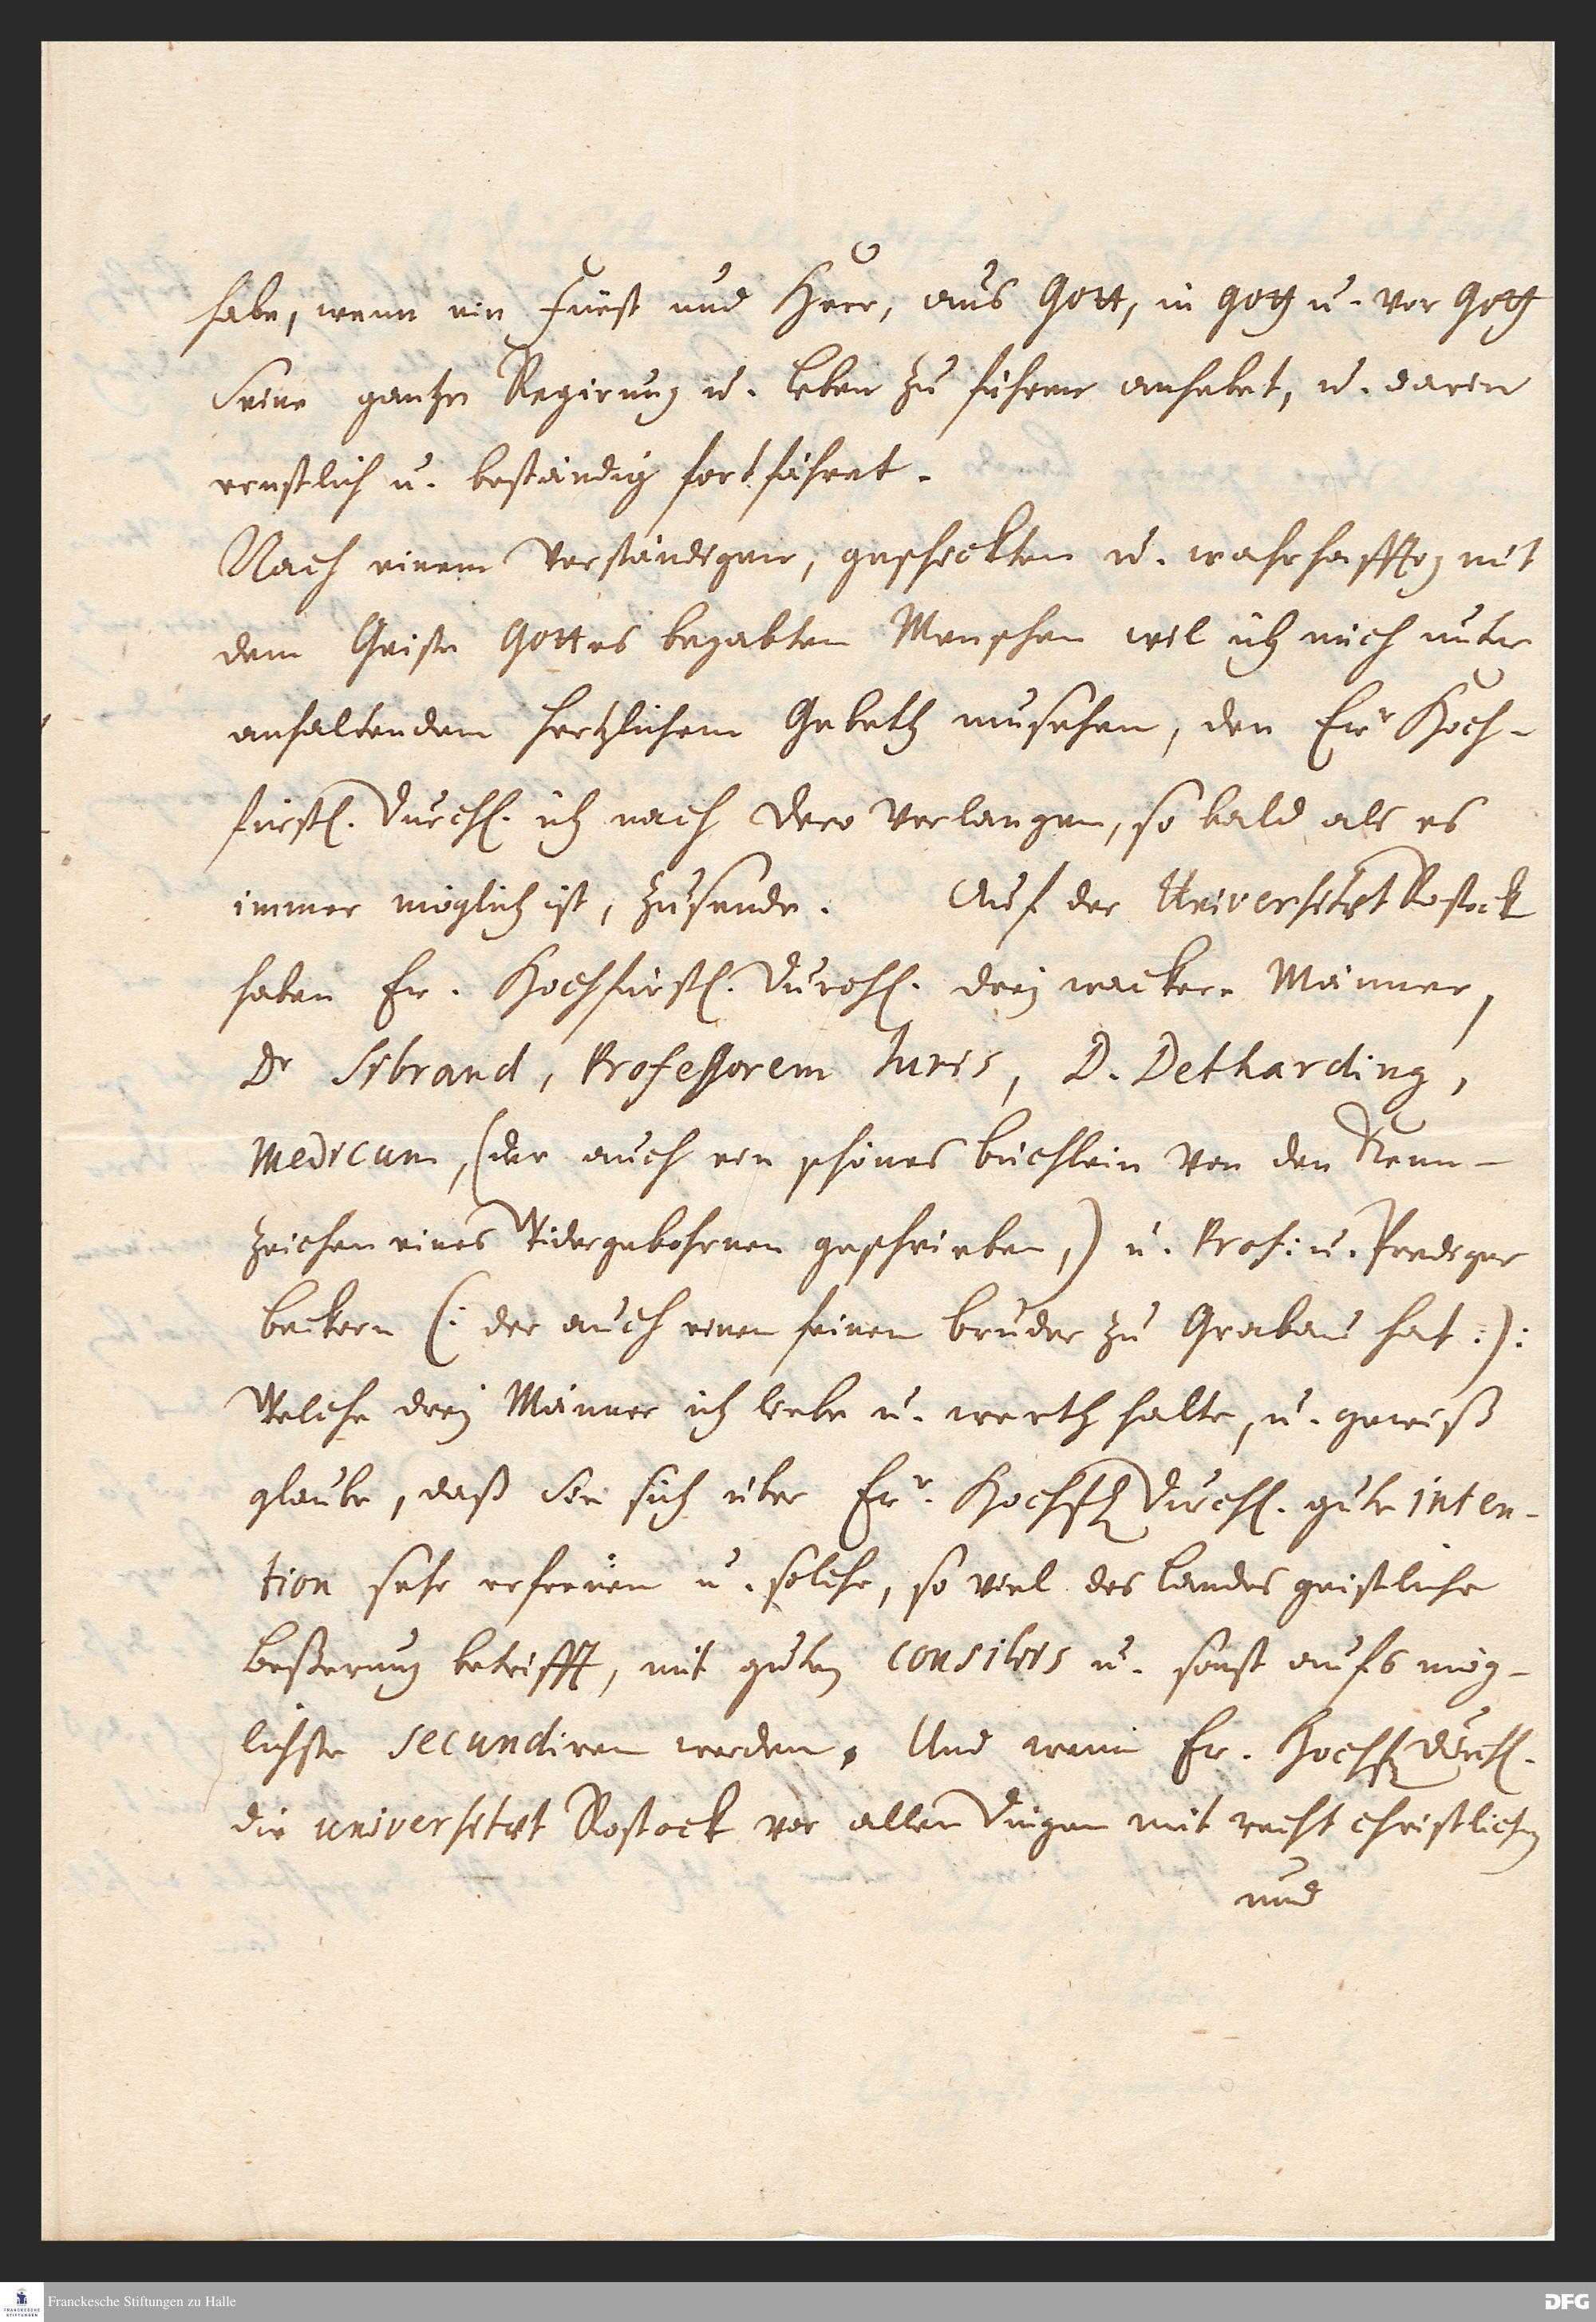 habe, wenn ein Fürst und Herr, aus Gott, in Gott u. vor Gott
seine gantze Regirung u. Leben zu führen anhebet, u. darin
ernstlich u. beständig fortfähret.
Nach einem verständigen, geschickten u. wahrhafftig mit
dem Geiste Gottes begabten Menschen wil ich mich unter
anhaltendem hertzlichem Gebeth umsehen, den Ewr Hoch-
fürstl. Durchl. ich nach Dero Verlangen, so bald als es
immer möglich ist, zusende. Auf der Universitæt Rostock
haben Ew. Hochfürstl. Durchl. drey wackere Männer,
Dr Sibrand, Professorem Juris, D. Detharding,
Medicum, (der auch ein schönes büchlein von den Kenn-
zeichen eines Widergebohrnen geschrieben,) u. Prof: u. Prediger
beckern (: der auch einen feinen bruder zu Grabau hat :):
Welche drey Männer ich liebe u. werth halte, u. gewiß
glaube, daß Sie sich über Ewr. Hochfl Durchl. gute inten-
tion sehr erfreuen u. solche, so viel des Landes geistliche
beßerung betrifft, mit guten consiliis u. sonst aufs mög-
lichste secundiren werden. Und wenn Ew. Hochfl Durchl.
die universitæt Rostock vor allen Dingen mit recht christlichen
und
Franckesche Stiftungen zu Halle
FRANCKESCHE
STIFTUNGEN
DFG